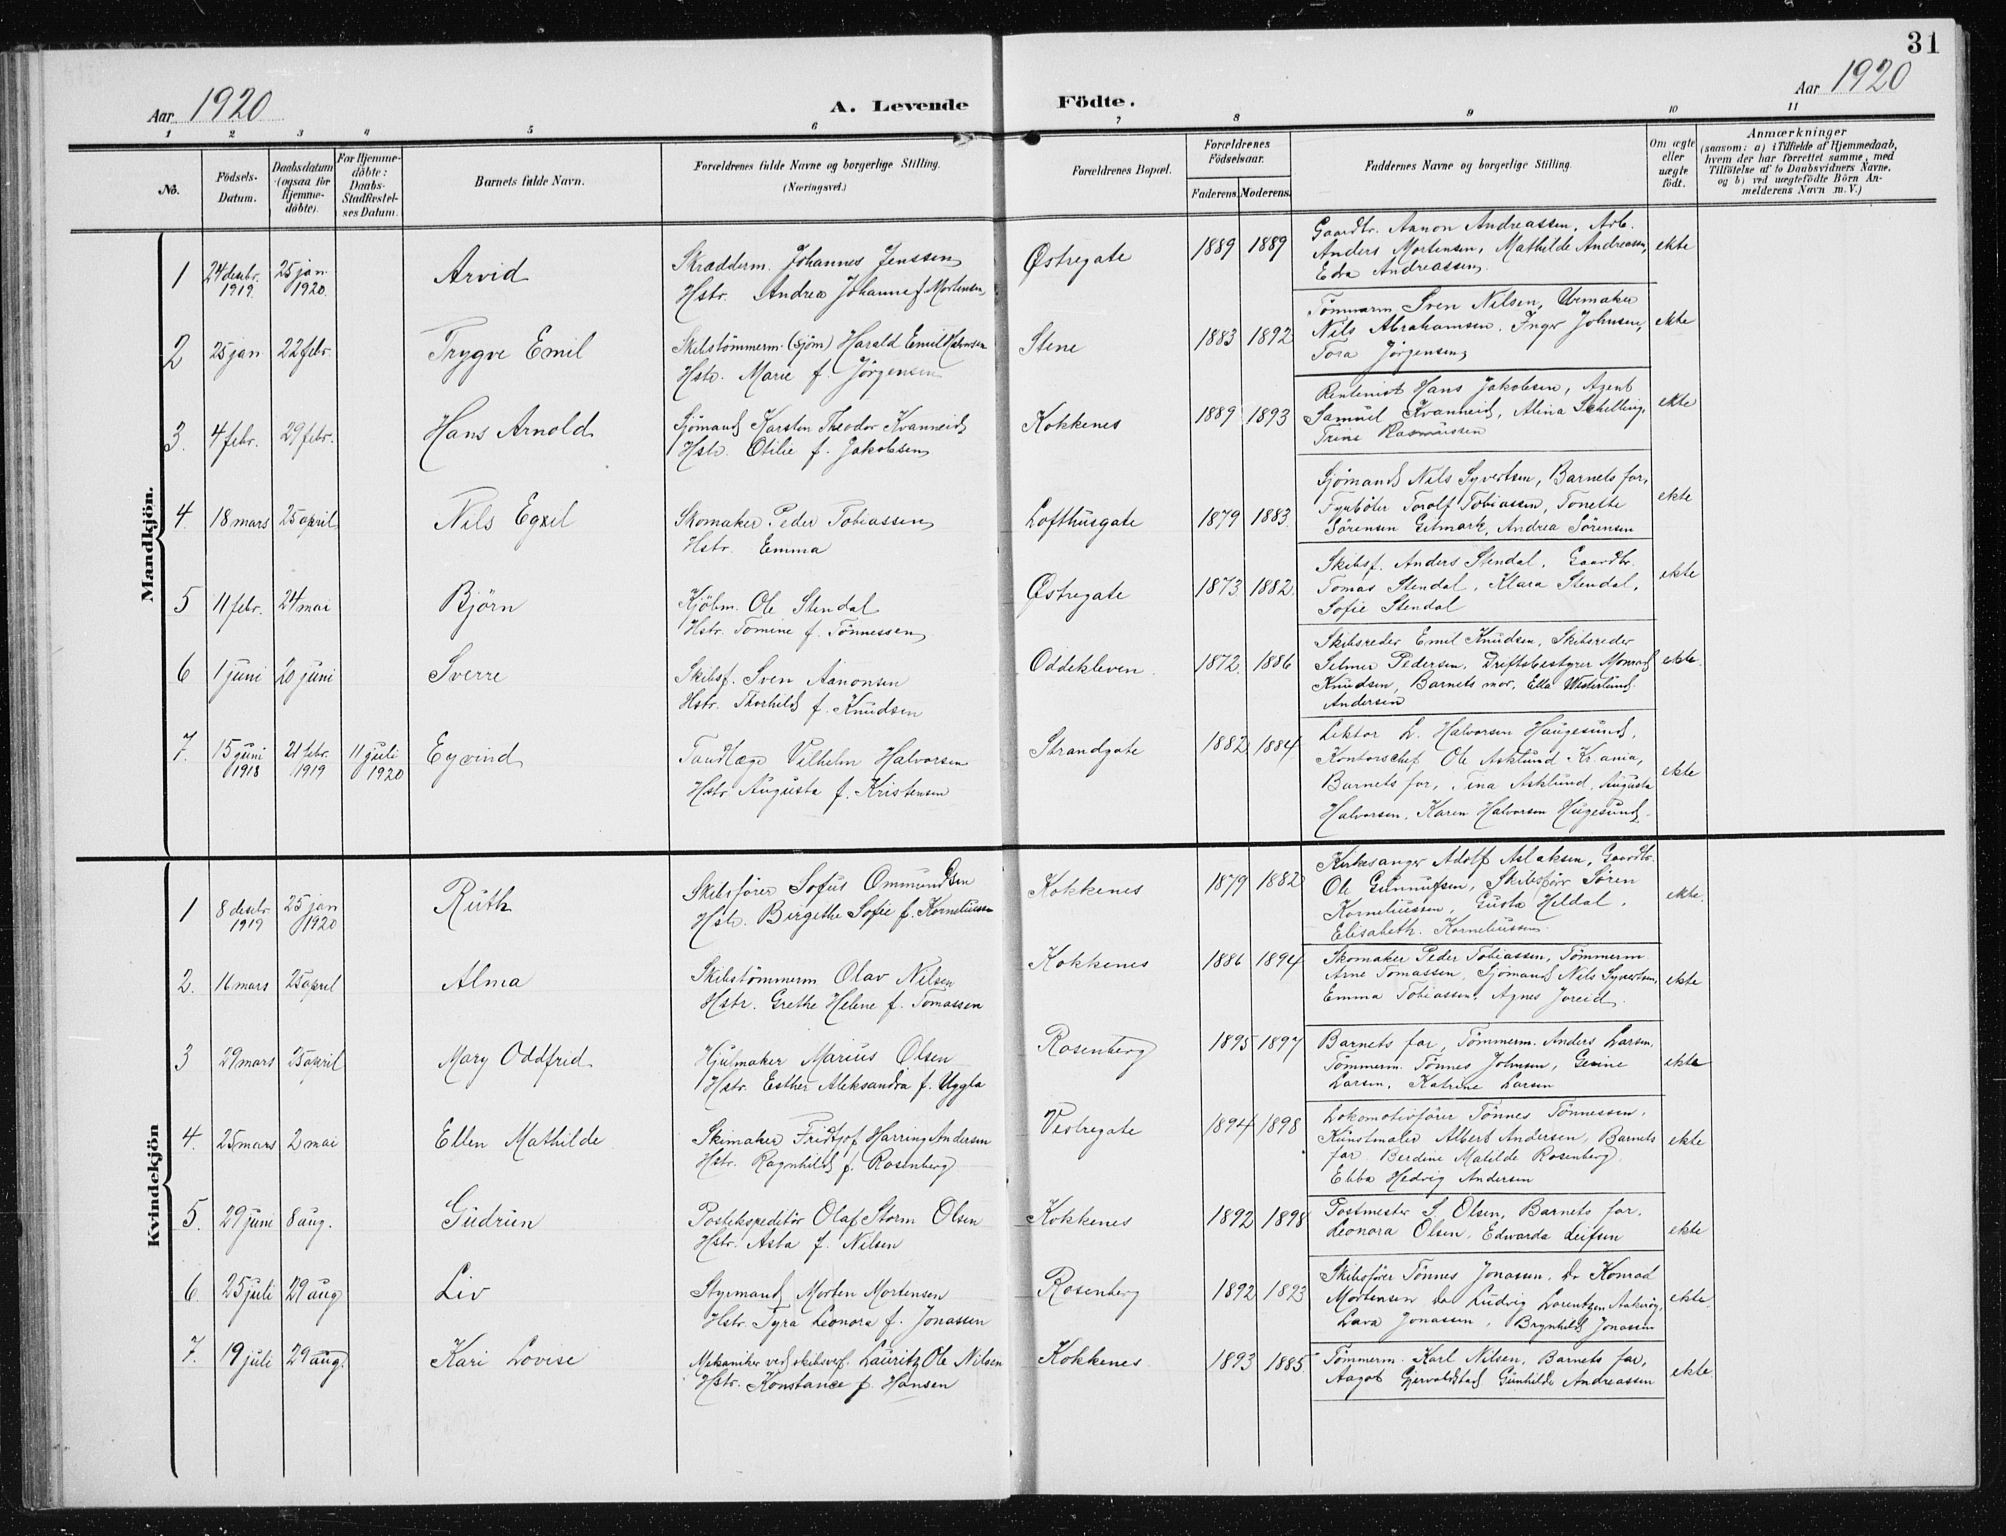 31
Aar 1920 A. Levende Födte. Aar 1920
1 2 3 4 5 6 7 8 9 10 11
No.
Födsels-Datum.
Daabsdatum (ogsaa for Hjemme-döbte).
For Hjemme-döbte: Daabs-Stadfestel-ses Datum.
Barnets fulde Navn.
Forældrenes fulde Navne og borgerlige Stilling.
(Næringsvei.)
Forældrenes Bopæl.
Forældrenes Födselsaar.
Faderens. Moderens.
Faddernes Navne og borgerlige Stilling.
Om ægte eller uægte födt.
Anmærkninger
(saasom: a) i Tilfælde af Hjemmedaab,
hvem der har forrettet samme, med
Tilföielse af to Daabsvidners Navne,
og b) ved uægtefödte Börn An-
melderens Navn m. V.)
Mandkjön.
1 24 desbr. 1919. 25 jan 1920. Arvid
Skrædderm. Johannes Jenssen
Hstr. Andrea Johanne f. Mortensen
Østregate 1889 1889
Gaardbr. Aanon Andreassen, Arb.
Anders Mortensen, Mathilde Andreassen,
Edva Andreassen.
ekte
2 25 jan 22 febr. Trygve Emil
Skibstömmerm. (sjöm) Harald Emil Halvorsen
Hstr. Marie f. Jörgensen
Stene 1883 1892
Tömmerm Sven Nilsen, Urmaker
Nils Abrahamsen. Inger Johnsen,
Tora Jörgensen
ekte
3. 4 febr. 29 febr. Hans Arnold
Sjömand Karsten Theodor Kvanneid
Hstr. Otilie f. Jakobsen
Kokkenes 1889 1893
Rentenist Hans Jakobsen, Agent
Samuel Kvanneid, Alina Schelling,
Trine Rasmussen
ekte
4. 18 mars 25 april Nils Egil
Skomaker Peder Tobiassen
Hstr. Emma
Lofthusgate 1879 1883.
Sjömand Nils Syvertsen, Barnets far,
Fyrböter Torolf Tobiassen, Tonette
Sörensen Gitmark, Andrea Sörensen
ekte
5 11 febr. 24 mai Björn
Kjöbm. Ole Stendal
Hstr. Tomine f. Tönnessen
Østregate 1873 1882.
Skibsf. Anders Stendal. Gaardbr.
Tomas Stendal. Klara Stendal.
Sofie Stendal
ekte
6 1 juni 20 juni Sverre
Skibsf. Sven Aanonsen
Hstr. Thorhild f. Knudsen
Oddekleven. 1872. 1886
Skibsreder Emil Knudsen, Skibsreder
Selmer Pedersen, Driftsbestyrer Monrad
Knudsen, Barnets mor, Ella Westerlund
Andersen
ekte.
7. 15 juni 1918 21 febr. 1919 11 juli 1920 Eyvind
Tandlæge Vilhelm Halvorsen
Hstr. Augusta f. Kristensen
Strandgate 1882 1884
Lektor L. Halvorsen Haugesund,
Kontorschef Ole Asklund Kr.ania,
Barnets far, Tina Asklund, Augusta
Halvorsen, Karen Halvorsen Hugesund.
ekte
Kvindekjön
1 8 desbr 1919 25 jan 1920 Ruth
Skibsfører Sofus Ommundsen
Hstr. Birgithe Sofie f. Korneliussen
Kokkenes 1879 1882
Kirkesanger Adolf Aslaksen, Gaardbr.
Ole Gunnufsen, Skibsförer Sören
Korneliussen, Gusta Hildal,
Elisabeth Korneliussen.
ekte.
2. 16 mars 25 april Alma
Skibstömmerm Olav Nilsen
Hstr. Grethe Helene f. Tomassen
Kokkenes 1886 1894
Skomaker Peder Tobiassen, Tömmerm
Arne Tomassen, Sjömand Nils Syvertsen,
Emma Tobiassen, Agnes Joreid.
ekte
3 29 mars 25 april Mary Oddfrid
Hjulmaker Marius Olsen
Hstr. Esther Aleksandra f. Uggla
Rosenberg 1895 1897
Barnets far, Tömmerm. Anders Larsen,
Tömmerm. Tönnes Johnsen, Gesine
Larsen, Katrine Larsen
ekte
4. 25 mars 2 mai Ellen Mathilde
Skimaker Fridtjof Harring Andersen
Hstr. Ragnhild f. Rosenberg
Vestregate 1894 1898
Lokomotivförer Tönnes Tönnessen,
Kunstmaler Albert Andersen, Barnets
far Berdine Matilde Rosenberg,
Ebba Hedvig Andersen
ekte
5. 29 juni 8 aug. Gudrun
Postekspeditör Olaf Storm Olsen
Hstr. Asta f. Nilsen
Kokkenes 1892 1898
Postmester S. Olsen, Barnets far.
Leonora Olsen, Edwarda Leifsen
ekte
6. 25 juli 29 aug Liv
Styrmand Morten Mortensen
Hstr. Tyra Leonora f. Jonassen
Rosenberg 1892 1893
Skibsförer Tönnes Jonassen. do Konrad
Mortensen do Ludvig Lorentzen Aakeröy,
Lava Jonassen, Brynhild Jonassen
ekte.
7. 19 juli 29 aug. Kari Lovise
Mekaniker ved skibsverf. Lauritz Ole Nilsen
Hstr. Konstance f. Hansen
Kokkenes 1893 1885
Tömmerm. Karl Nilsen, Barnets far,
Aagot Gunhilde Andreassen
ekte.